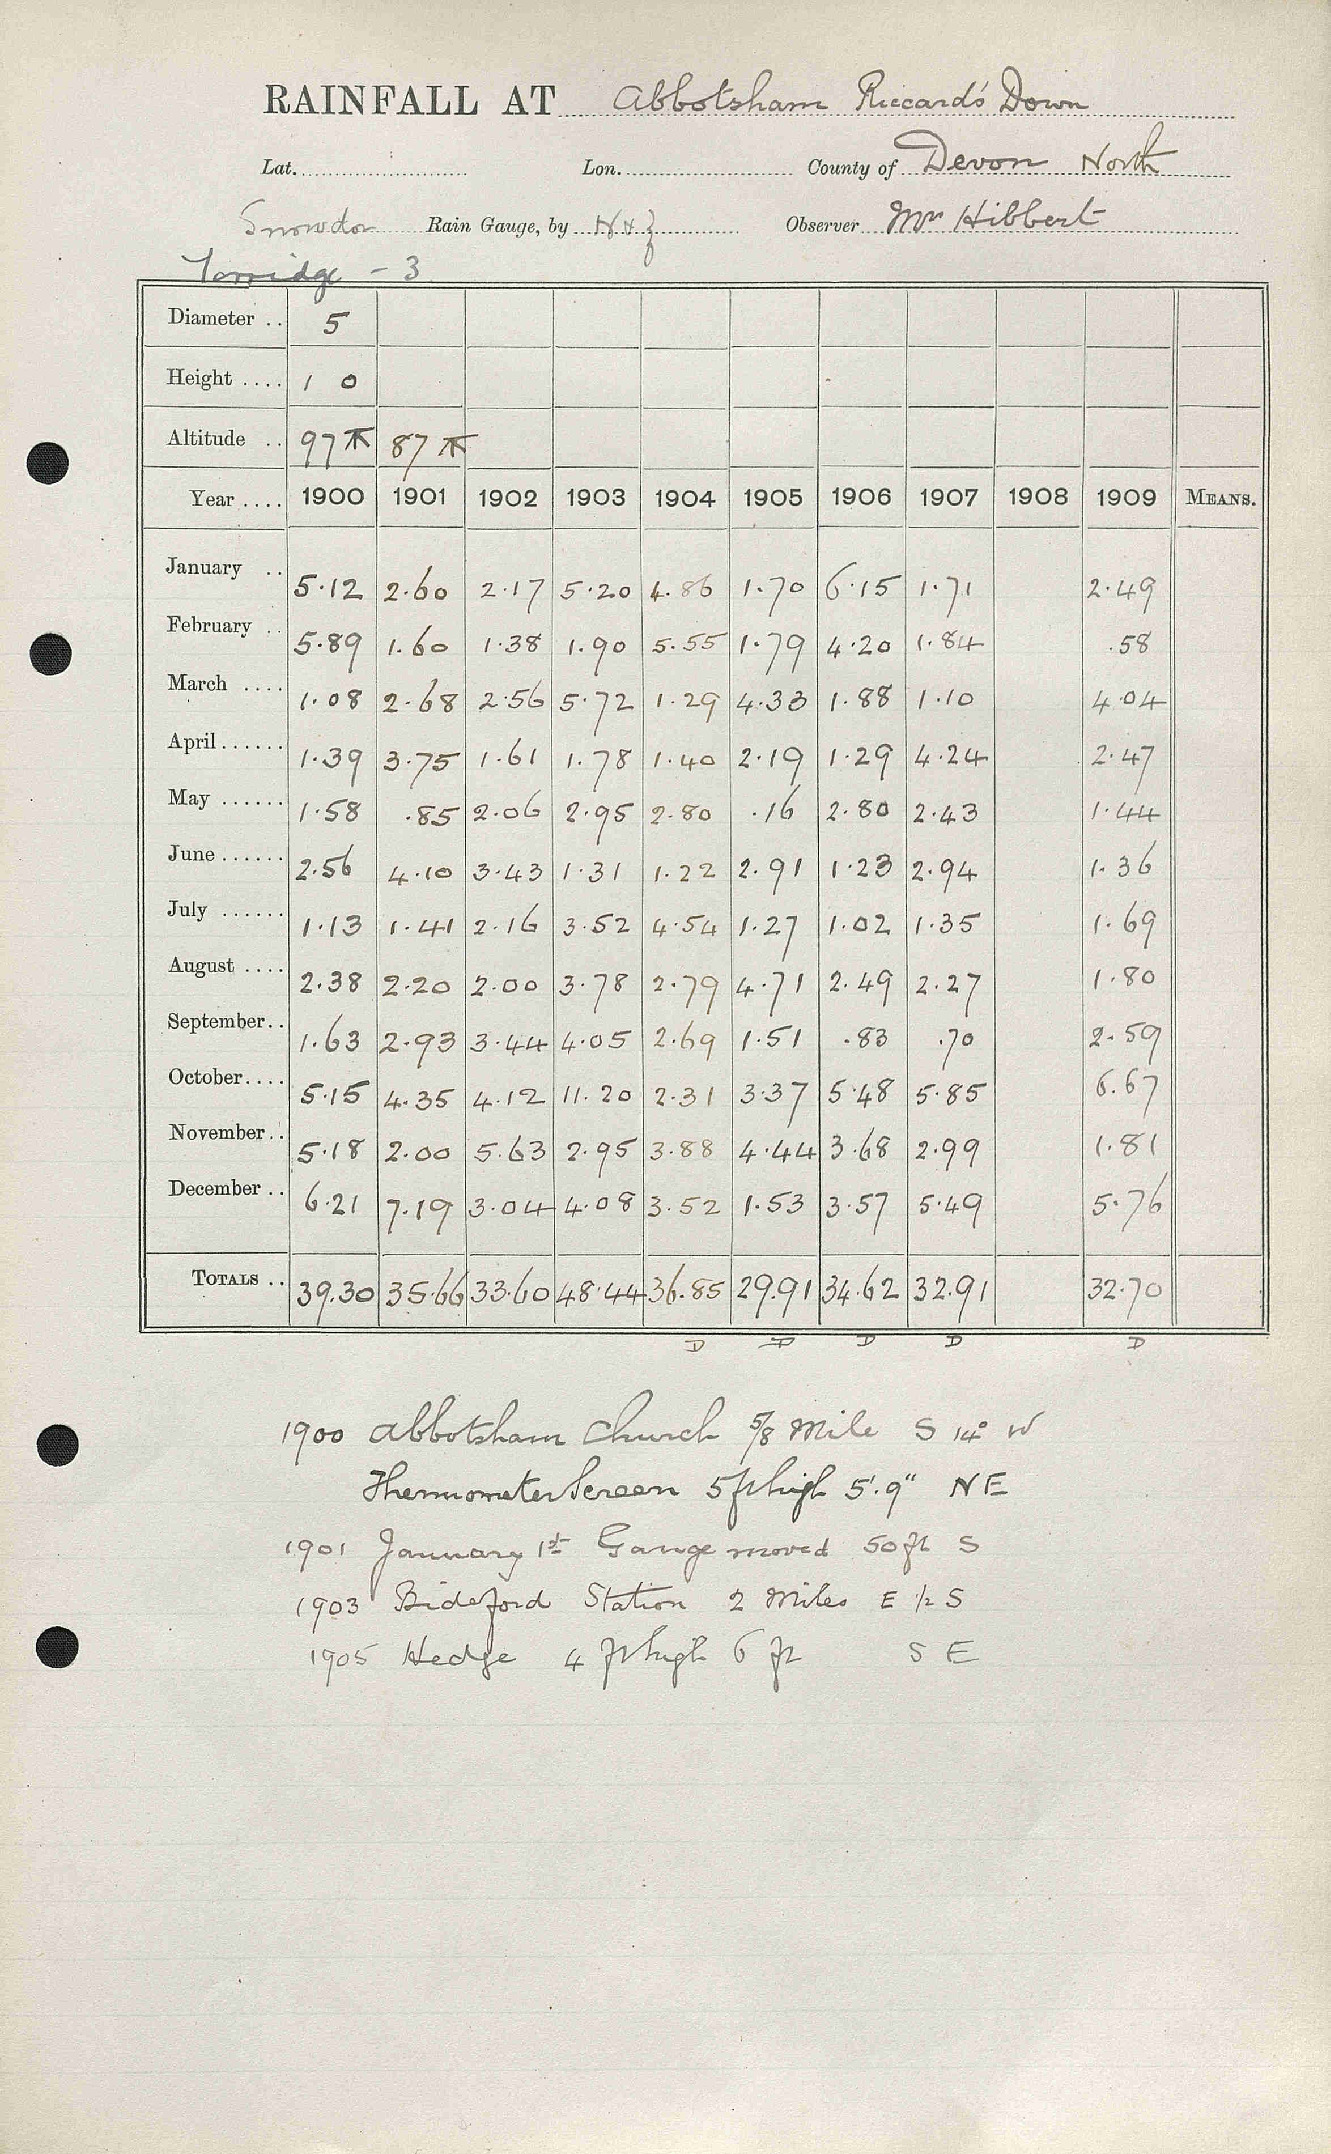 RAINFALL AT Abbotsham Riccard's Down
Lat. Lon. County of Devon North
Snowdon Rain Gauge, by N & Z Observer Mr Hibbert
Torridge - 3
Diameter .. 5
Height .... 1 0
Altitude .. 97 87
Year .... 1900 1901 1902 1903 1904 1905 1906 1907 1908 1909 MEANS.
January .. 5.12 2.60 2.17 5.20 4.86 1.70 6.15 1.71 2.49
February .. 5.89 1.60 1.38 1.90 5.55 1.79 4.20 1.84 .58
March .... 1.08 2.68 2.56 5.72 1.29 4.33 1.88 1.10 4.04
April ...... 1.39 3.75 1.61 1.78 1.40 2.19 1.29 4.24 2.47
May ...... 1.58 .85 2.06 2.95 2.80 .16 2.80 2.43 1.44
June ...... 2.56 4.10 3.43 1.31 1.22 2.91 1.23 2.94 1.36
July ...... 1.13 1.41 2.16 3.52 4.54 1.27 1.02 1.35 1.69
August .... 2.38 2.20 2.00 3.78 2.79 4.71 2.49 2.27 1.80
September.. 1.63 2.93 3.44 4.05 2.69 1.51 .83 .70 2.59
October.... 5.15 4.35 4.12 11.20 2.31 3.37 5.48 5.85 6.67
November.. 5.18 2.00 5.63 2.95 3.88 4.44 3.68 2.99 1.81
December .. 6.21 7.19 3.04 4.08 3.52 1.53 3.57 5.49 5.76
TOTALS .. 39.30 35.66 33.60 48.44 36.85 29.91 34.62 32.91 32.70
D D D D D
1900 Abbotsham Church 5/8 Mile S 14° W
Thermometer Screen 5 ft high 5'.9" NE
1901 January 1st Gauge moved 50 ft S
1903 Bideford Station 2 Miles E 1/2 S
1905 Hedge 4 ft high 6 ft S E